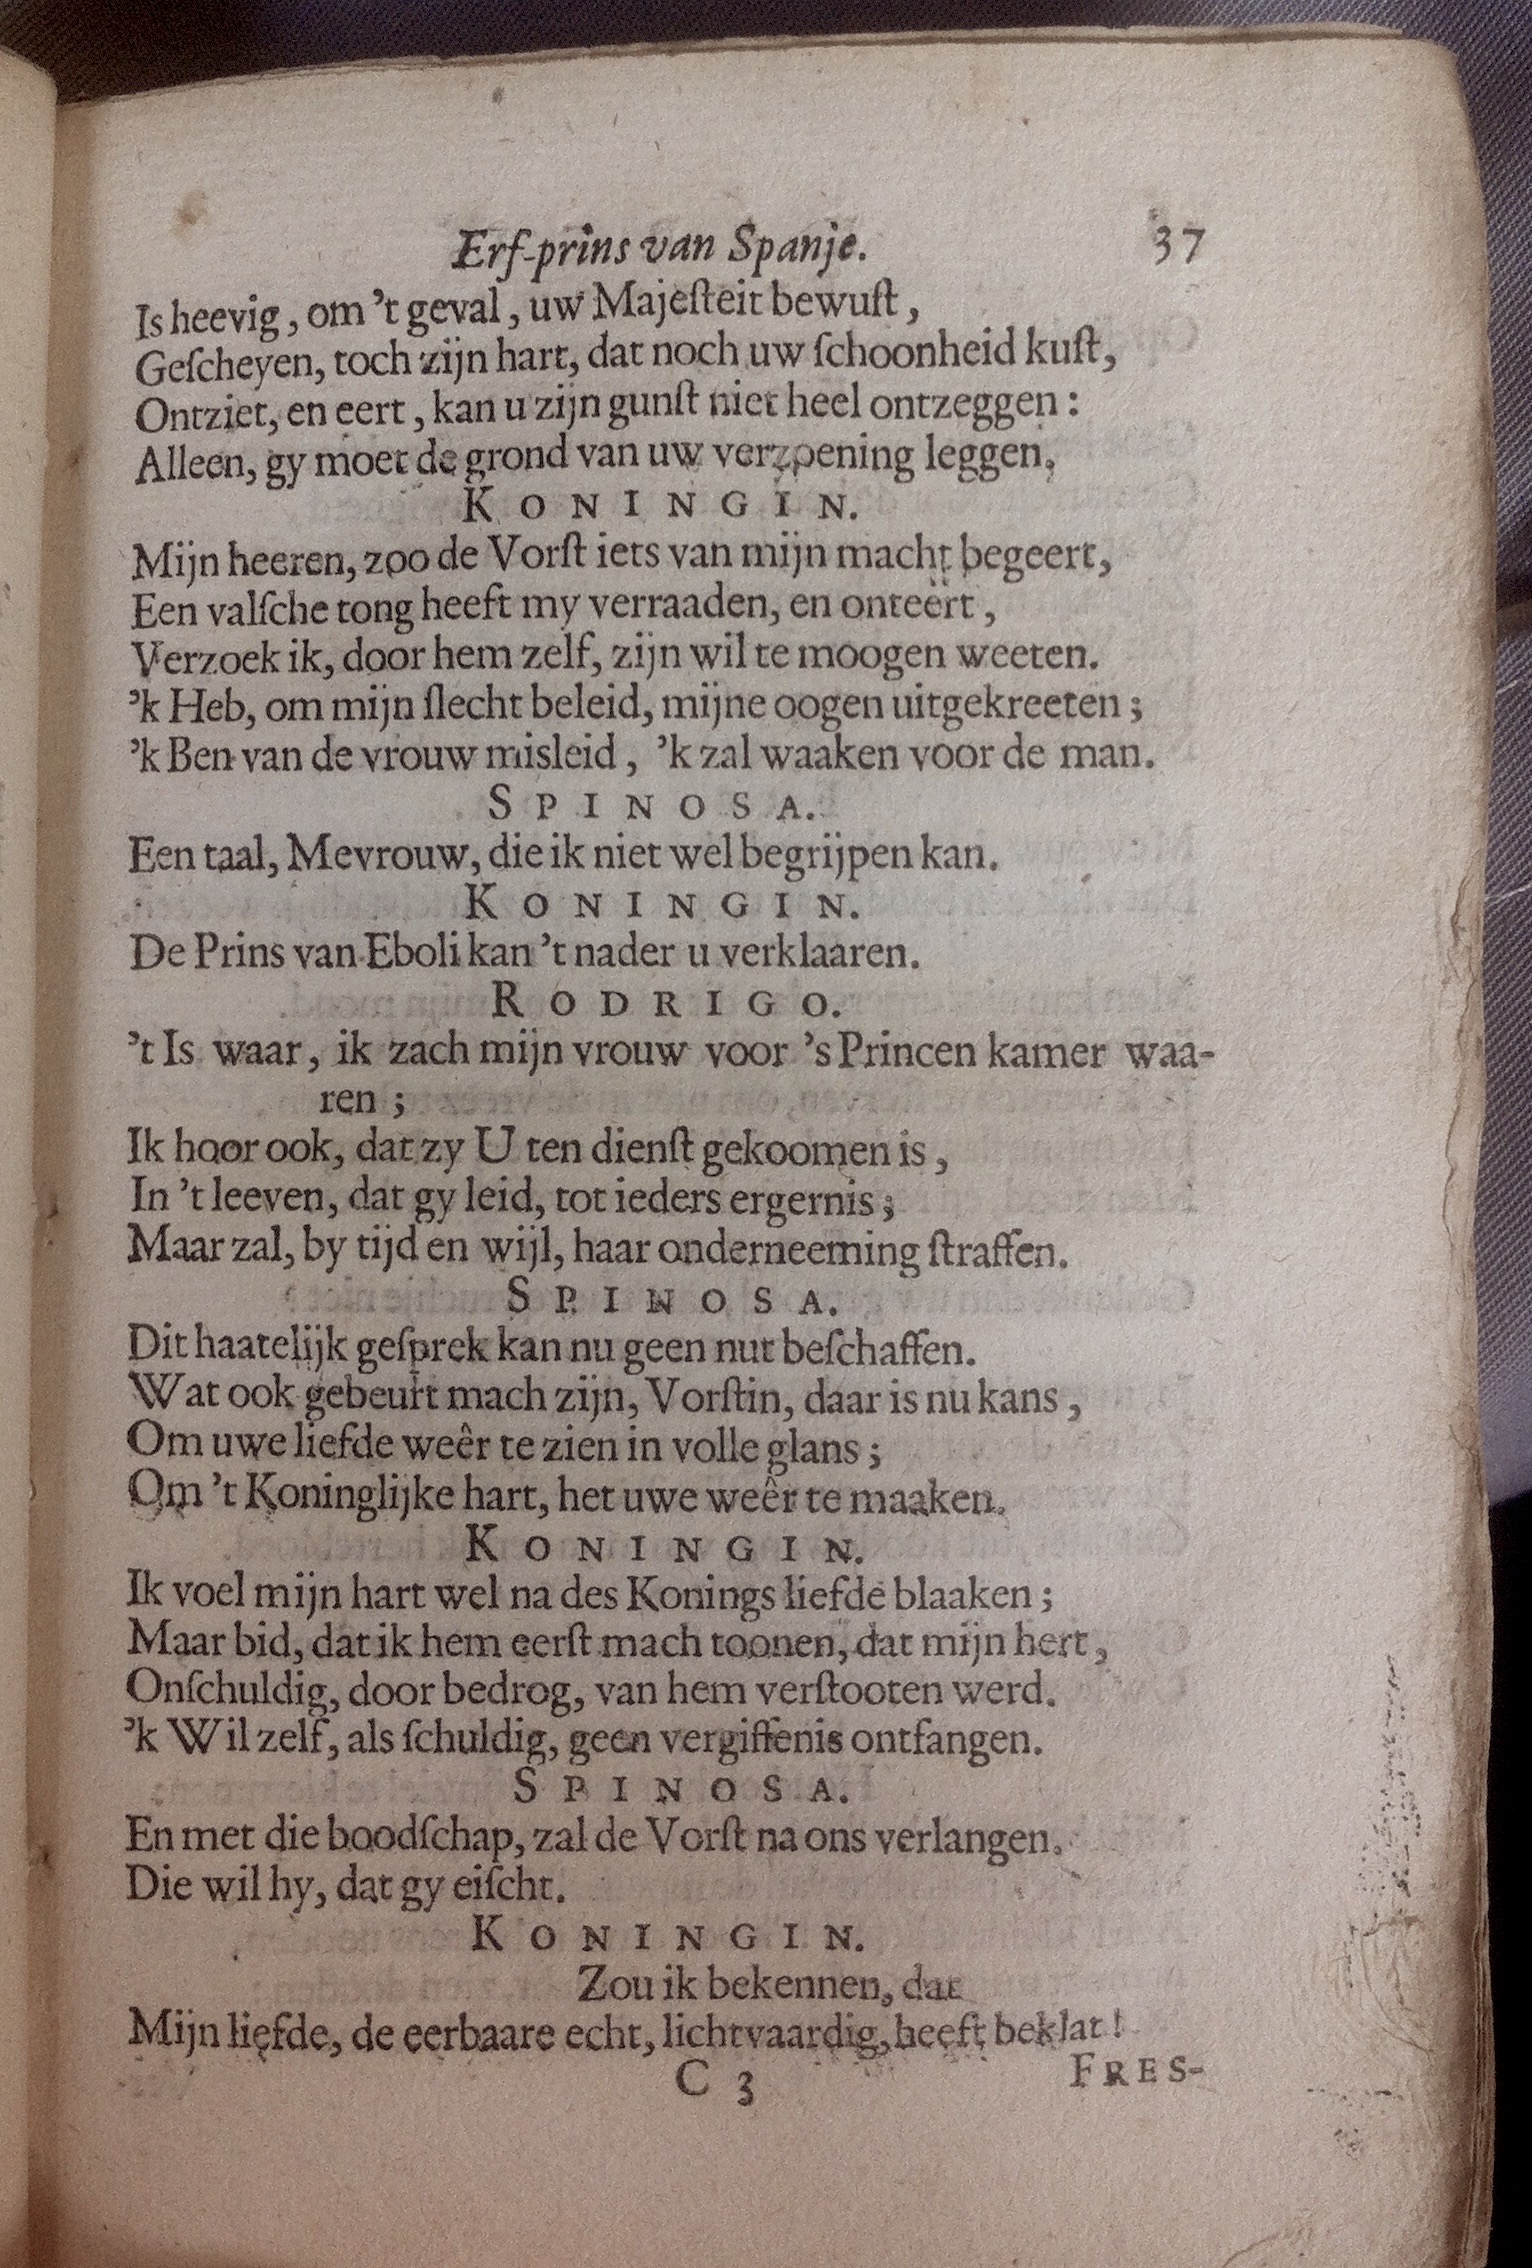 Erf-prins van Spanje. 37
Is heevig, om 't geval, uw Majeſteit bewuſt,
Geſcheyen, toch zijn hart, dat noch uw ſchoonheid kuſt,
Ontziet, en eert, kan u zijn gunſt niet heel ontzeggen:
Alleen, gy moet de grond van uw verzoening leggen.
KONINGIN.
Mijn heeren, zoo de Vorſt iets van mijn macht begeert,
Een valſche tong heeft my verraaden, en onteërt,
Verzoek ik, door hem zelf, zijn wil te moogen weeten.
'k Heb, om mijn ſlecht beleid, mijne oogen uitgekreeten;
'k Ben van de vrouw misleid, 'k zal waaken voor de man.
SPINOSA.
Een taal, Mevrouw, die ik niet wel begrijpen kan.
KONINGIN.
De Prins van Eboli kan 't nader u verklaaren.
RODRIGO.
't Is waar, ik zach mijn vrouw voor 's Princen kamer waa-
ren;
Ik hoor ook, dat zy U ten dienſt gekoomen is,
In 't leeven, dat gy leid, tot ieders ergernis;
Maar zal, by tijd en wijl, haar onderneeming ſtraffen.
SPINOSA.
Dit haatelijk geſprek kan nu geen nut beſchaffen.
Wat ook gebeurt mach zijn, Vorſtin, daar is nu kans,
Om uwe liefde weêr te zien in volle glans;
Om 't Koninglijke hart, het uwe weêr te maaken.
KONINGIN.
Ik voel mijn hart wel na des Konings liefde blaaken;
Maar bid, dat ik hem eerſt mach toonen, dat mijn hert,
Onſchuldig, door bedrog, van hem verſtooten werd.
'k Wil zelf, als ſchuldig, geen vergiffenis ontfangen.
SPINOSA.
En met die boodſchap, zal de Vorſt na ons verlangen.
Die wil hy, dat gy eiſcht.
KONINGIN.
Zou ik bekennen, dat
Mijn liefde, de eerbaare echt, lichtvaardig, heeft beklat!
C 3 FRES-